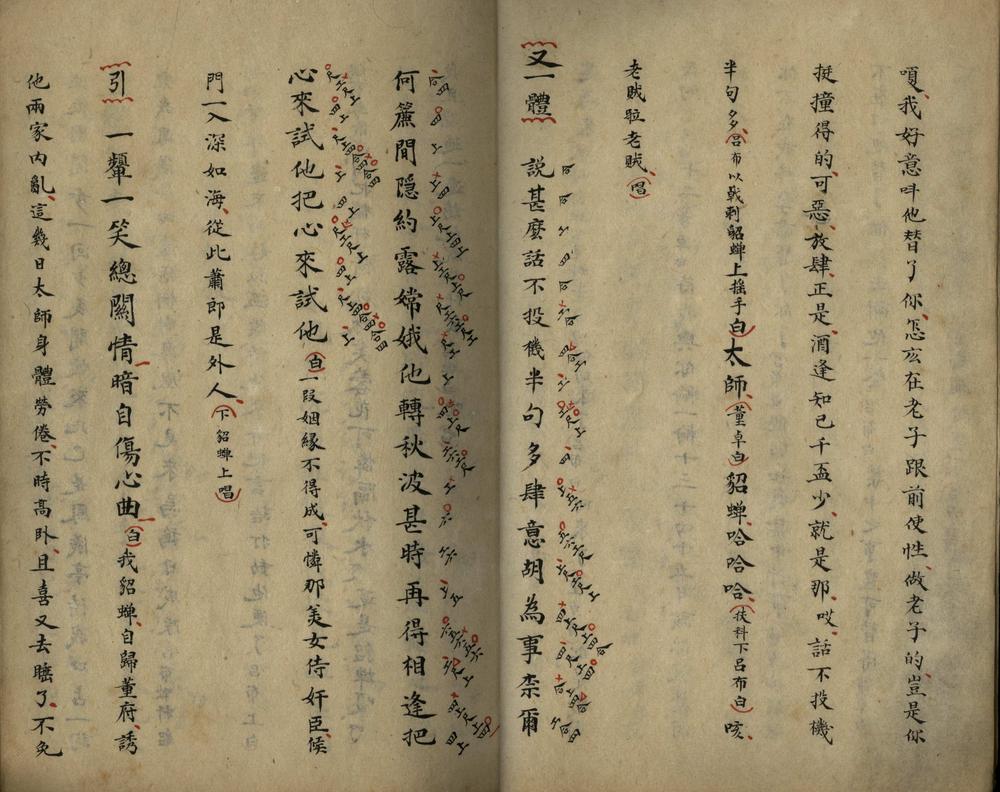 嗄我好意呌他替了你怎広在老子跟前使性做老子的豈是你
挺撞得的可惡放肆正是酒逢知己千盃少就是那哎話不投機
半句多呂布以戟刺貂蟬上搖手白太師董卓白貂蟬哈哈哈扶科下呂布白咳
老賊吓老賊唱
又一體 説甚麽話不投機半句多肆意胡為事柰爾
何簾間隱約露嫦娥他轉秋波甚時再得相逢把
心來試他把心來試他白一段姻縁不得成可憐那美女侍奸臣侯
門一入深如海從此蕭郎是外人下貂蟬上唱
引 一顰一笑總關情暗自傷心曲白我貂蟬自歸董府誘
他兩家内亂這幾日太師身體勞倦不時高卧且喜又去睡了不免